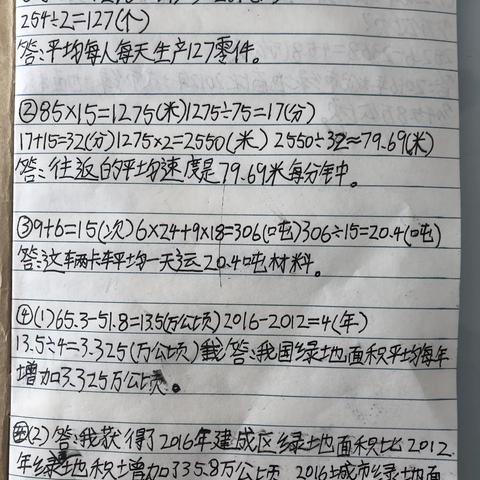 254÷2=127(个)
答:平均每人每天生产127零件。
②85×15=1275(米)1275÷75=17(分)
17+15=32(分)1275×2=2550(米) 2550÷32≈79.69(米)
答:往返的平均速度是79.69米每分钟。
③9+6=15(次)6×24+9×18=306(吨)306÷15=20.4(吨)
答:这辆卡车平均一天运20.4吨材料。
④(1)65.3-51.8=13.5(万公顷)2016-2012=4(年)
13.5÷4=3.325(万公顷)答:我国绿地面积平均每年
增加3.325万公顷。
(2)答:我获得了2016年建成区绿地面积比2012
年绿地积增加了35.8万公顷 2016城市绿地面